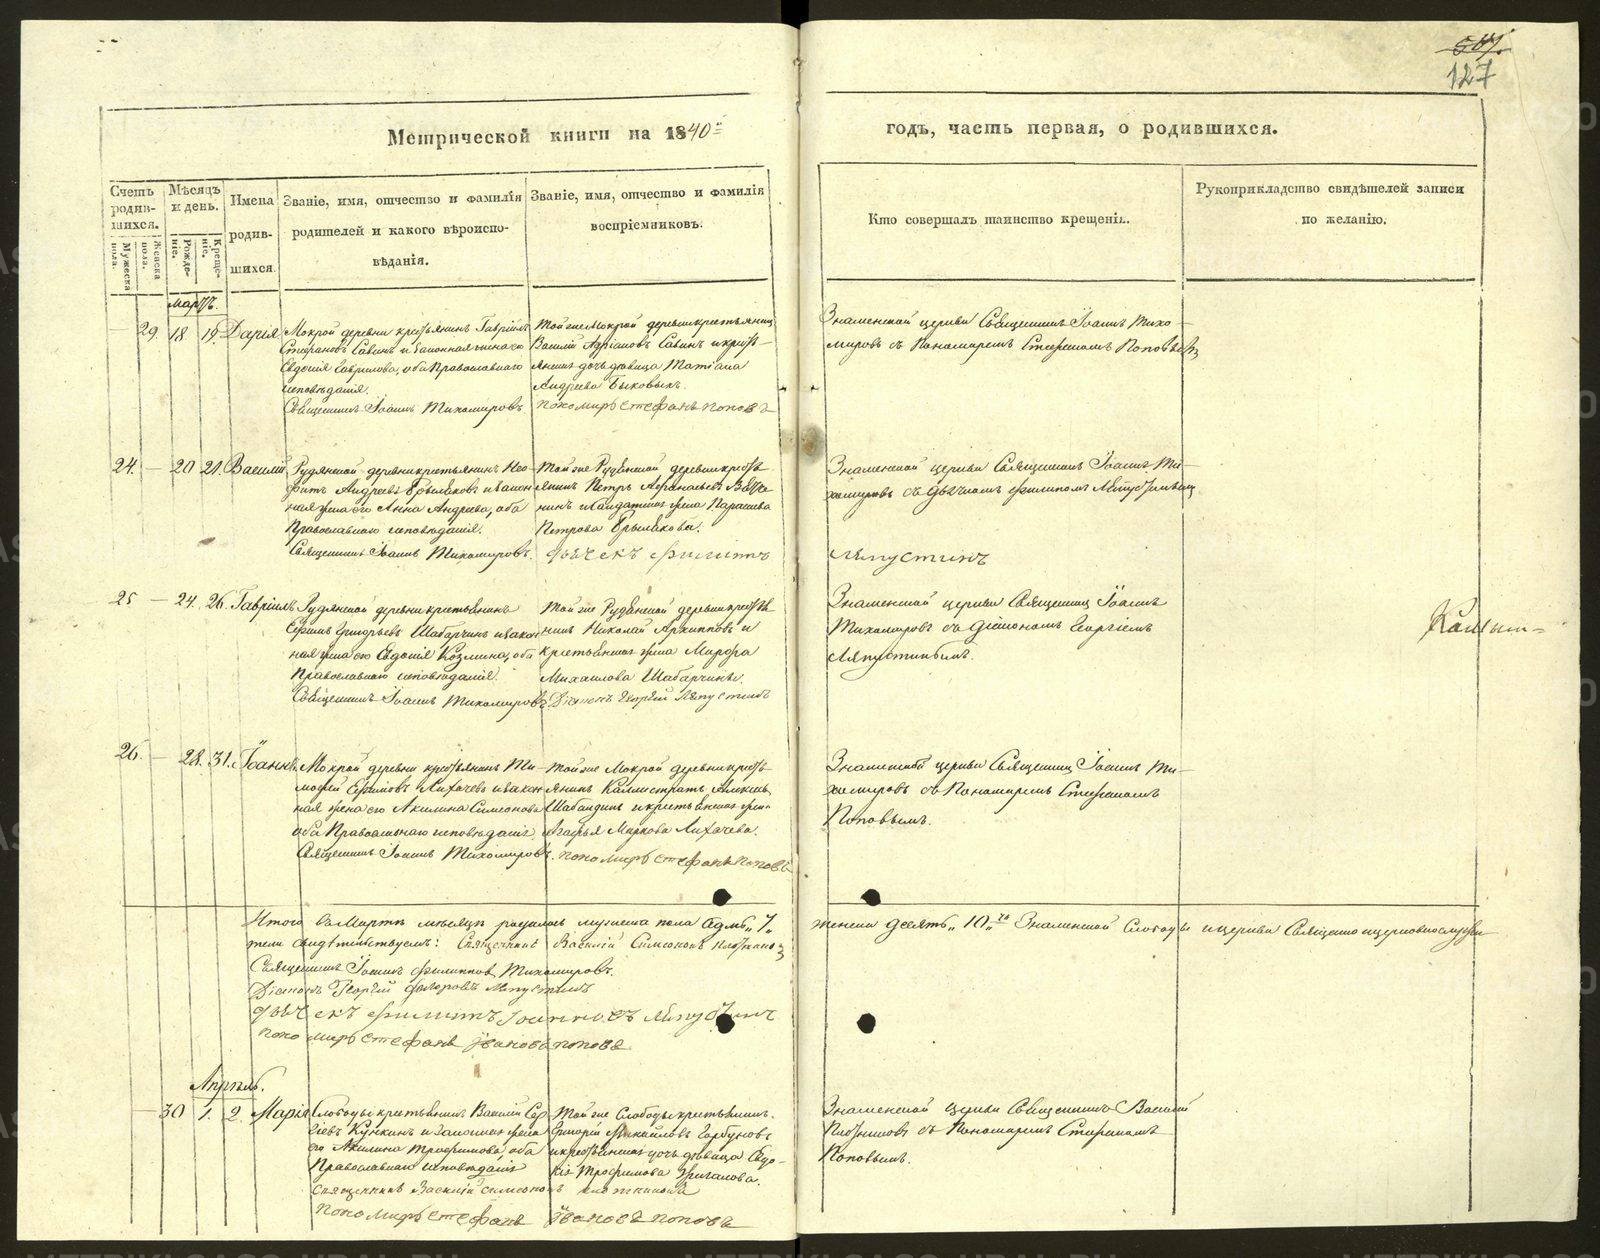 127
Метрической книги на 1840й
годъ, часть первая, о родившихся.
Счетъ родив-шихся.
Мужеска пола.
Женска пола.
Мѣсяцъ и день.
Рожде-ніе.
Креще-ніе.
Имена родив-шихся.
Званіе, имя, отчество и фамилія
родителей и какого вѣроиспо-
вѣданія.
Званіе, имя, отчество и фамилія
воспріемниковъ.
Кто совершалъ таинство крещенія.
Рукоприкладство свидѣтелей записи
по желанію.
Мартъ.
29. 18 19. Дарія
Мокрой деревни крестьянинъ Гавріилъ
Стефановъ Савинъ и законная жена его
Евдокія Гаврилова, оба Православнаго
исповѣданія.
Священникъ Іоаннъ Тихомировъ
Той же Мокрой деревни крестьянинъ
Василій Адріановъ Савинъ и кресть-
янская дочь дѣвица Татіана
Андреева Быковыхъ.
Пономарь Стефанъ Поповъ
Знаменской церкви Священникъ Іоаннъ Тихо-
мировъ съ Пономаремъ Стефаномъ Поповымъ
24. — 20 21. Василій
Рудянской деревни крестьянинъ
Андреевъ и закон-
ная жена его Анна Андреева, оба
Православнаго исповѣданія.
Священникъ Іоаннъ Тихомировъ.
Той же Рудянской деревни кресть-
янинъ Петръ
жена Параскева
Петрова
дьячекъ Филиппъ
Знаменской церкви Священникъ Іоаннъ Ти-
хомировъ съ дьячкомъ Филипомъ Ляпустинымъ
Ляпустинъ
25 — 24. 26. Гавріилъ
Рудянской деревни крестьянинъ
Ефимъ Григорьевъ Шабарчинъ и закон-
ная жена его Евдокія Козмина, оба
Православнаго исповѣданія.
Священникъ Іоаннъ Тихомировъ.
Той же Рудянской деревни кресть-
нинъ Николай Архиповъ и
крестьянская жена Марѳа
Михаилова Шабарчины.
Діаконъ Георгій Ляпустинъ
Знаменской церкви Священникъ Іоаннъ
Тихомировъ съ діакономъ Георгіемъ
Ляпустинымъ.
26. — 28. 31. Іоаннъ
Мокрой деревни крестьянинъ Ти-
мофей Ефимовъ Лихачевъ и закон-
ная жена его Акилина Симеонова
оба Православнаго исповѣданія
Священникъ Іоаннъ Тихомировъ.
Той же Мокрой деревни кресть-
янинъ Каллистратъ
Шабалдинъ и крестьянская жена
Агафья Маркова Лихачева.
Пономарь Стефанъ Поповъ
Знаменской церкви Священникъ Іоаннъ Ти-
хомировъ съ Пономаремъ Стефаномъ
Поповымъ.
Итого въ Мартѣ мѣсяцѣ родилось мужеска пола седмь „7„
женска десять „10„ что Знаменской Слободы и церкви Священно церковнослужи-
тели свидѣтельствуемъ: Священникъ Василій Симеоновъ
Священникъ Іоаннъ Филипповъ Тихомировъ.
Діаконъ Георгій Ляпустинъ
дьячекъ Филиппъ Іоанновъ Ляпустинъ
Пономарь Стефанъ Ивановъ Поповъ
Апрѣль.
— 30 1. 2. Марія
Слободы крестьянинъ Василій Сер-
гіевъ Кункинъ и законная жена
его Акилина Трофимова, оба
Православнаго исповѣданія
Священникъ Василій Симеоновъ
Пономарь Стефанъ Ивановъ Поповъ
Той же Слободы крестьянинъ
Григорій Михайловъ Горбуновъ
и крестьянская дочь дѣвица Евдо-
кія Трофимова
Знаменской церкви Священникъ Василій
съ Пономаремъ Стефаномъ
Поповымъ.